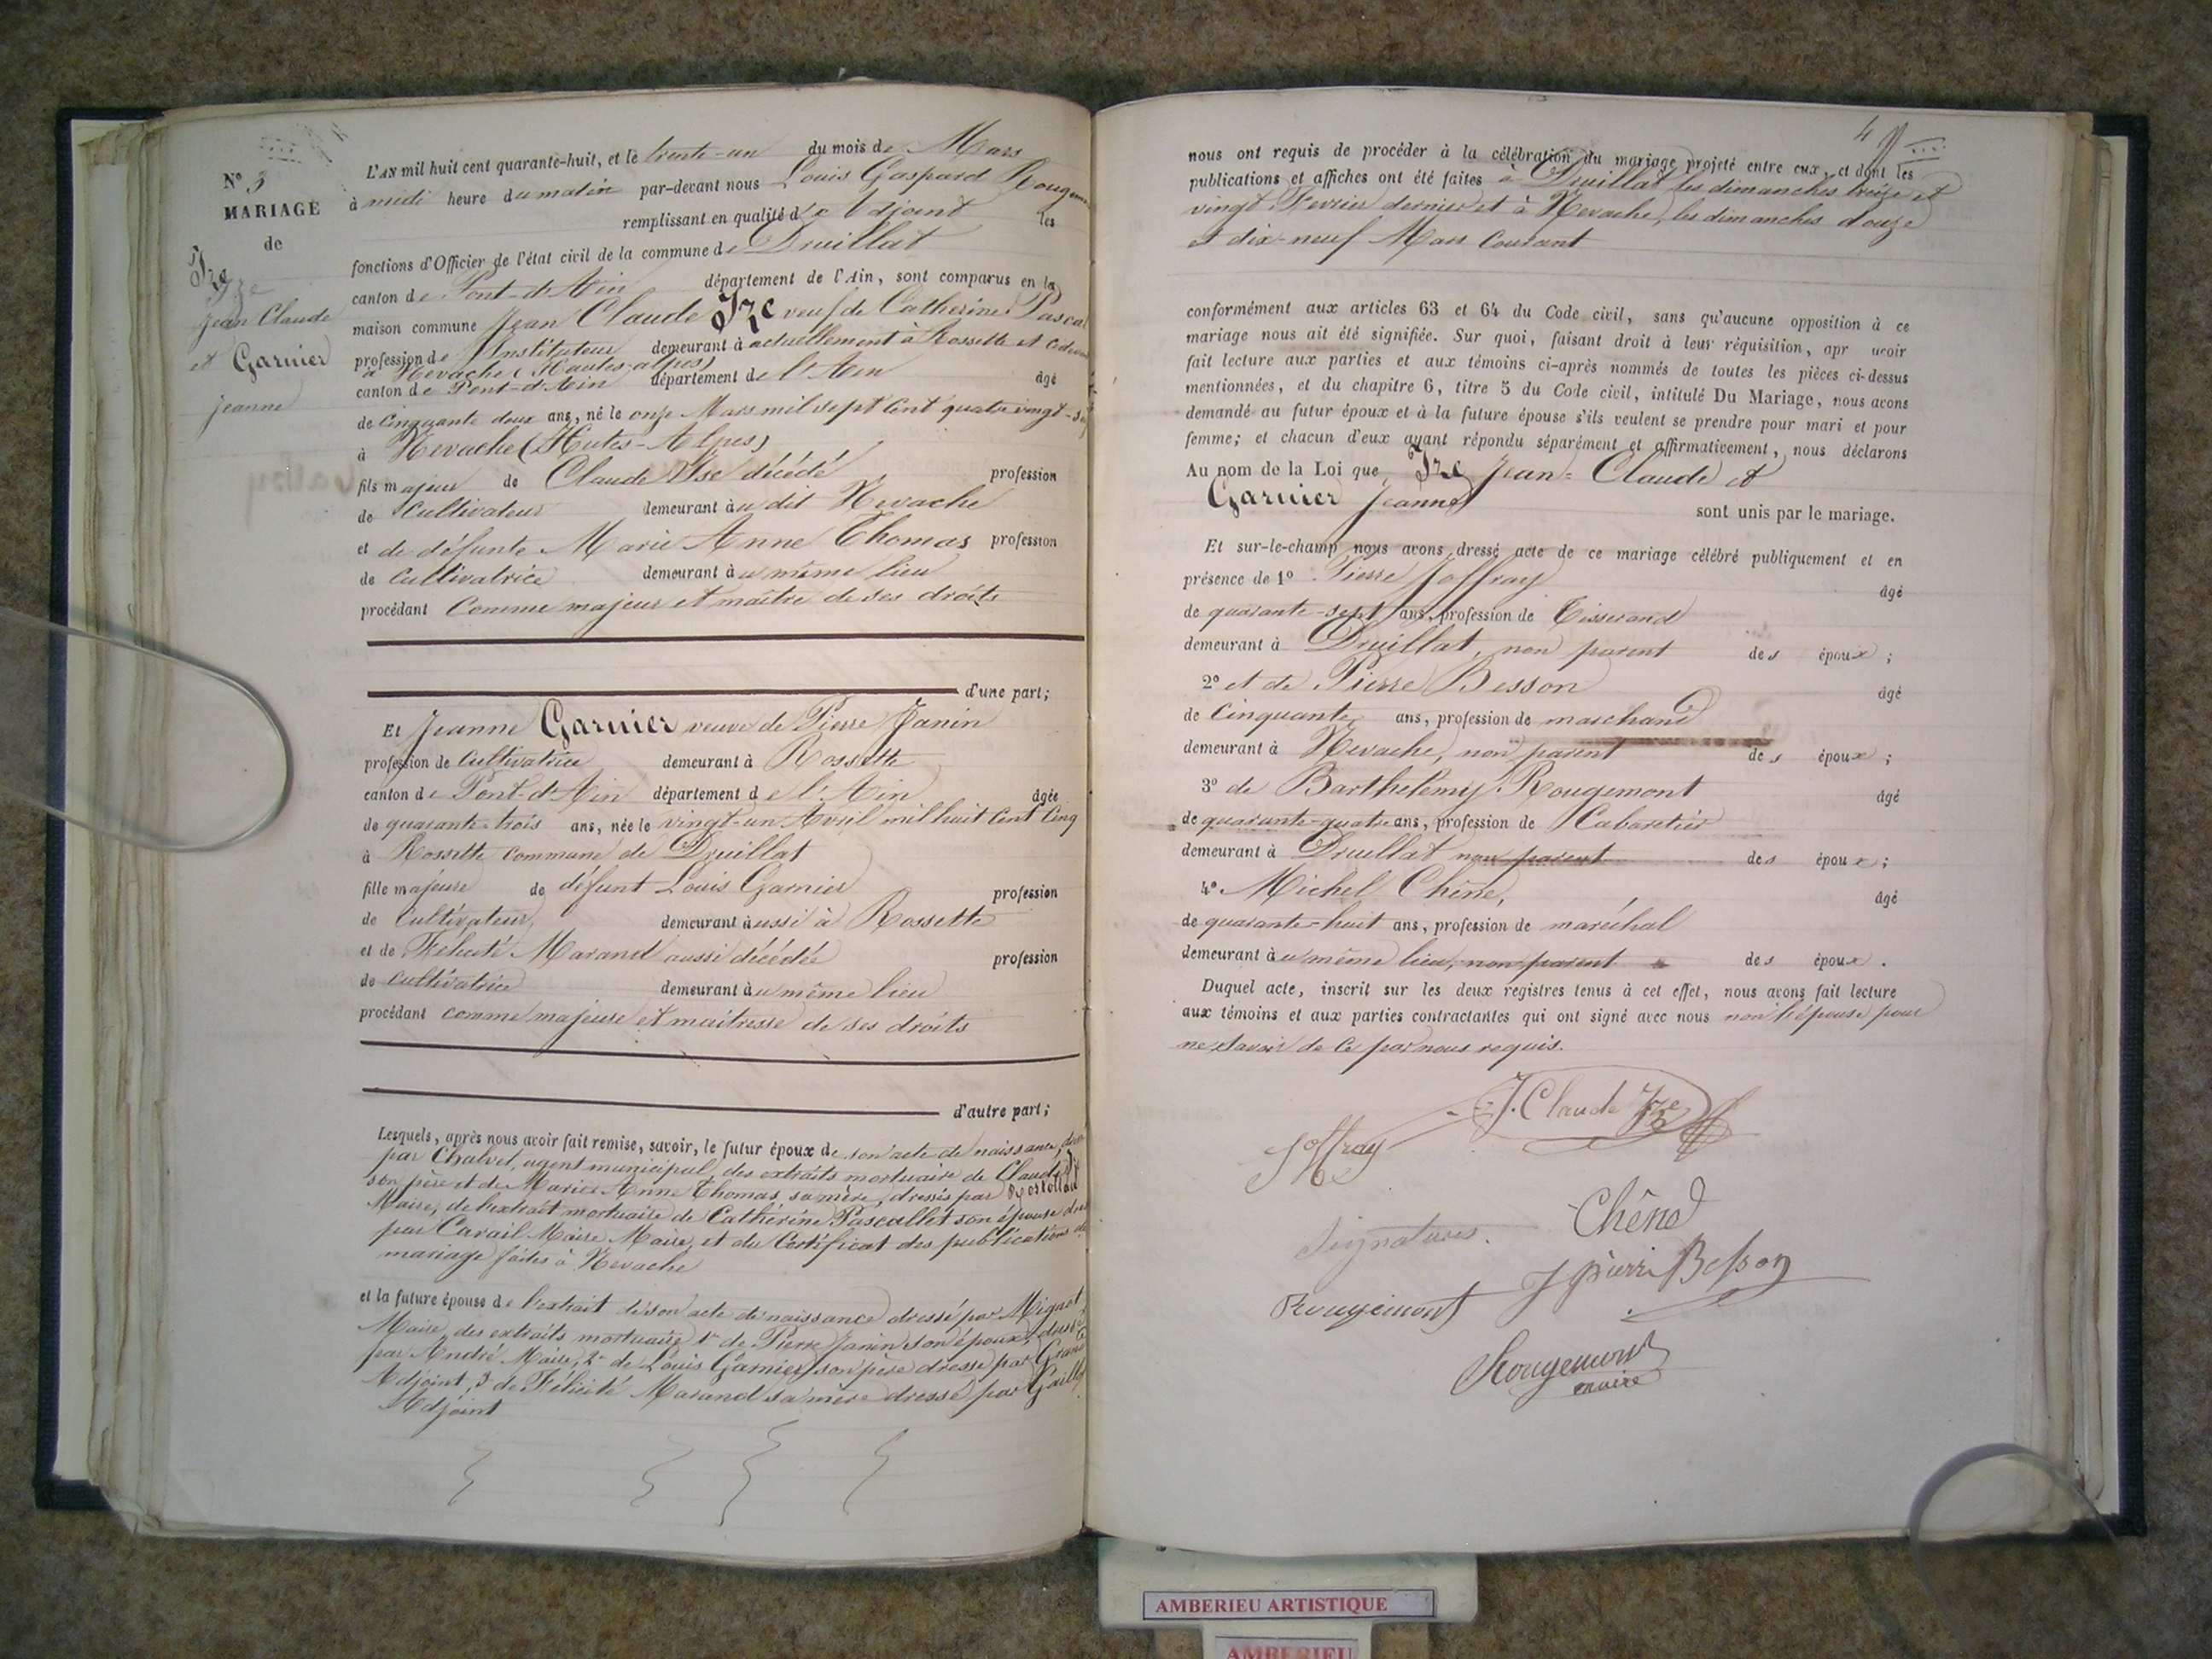 N° 3
MARIAGE
de
Ize
Ize
Jean Claude
et Garnier
Jeanne
L'AN mil huit cent quarante-huit, et le trente-un du mois de Mars
à midi heure du matin par-devant nous Louis Gaspard
remplissant en qualité d'Adjoint les
fonctions d'Officier de l'état civil de la commune de Druillat
canton de Pont-d'Ain département de l'Ain, sont comparus en la
maison commune Jean Claude Ize veuf de Catherine
profession de Instituteur demeurant à actuellement à Rossette et
à Nevache (Hautes-alpes)
canton de Pont-d'Ain département de l'Ain âgé
de Cinquante deux ans, né le onze Mars mil sept Cent quatre vingt-
à Nevache (Hutes-Alpes)
fils majeur de Claude Ise décédé profession
de Cultivateur demeurant au dit Nevache
et de défunte Marie Anne Thomas profession
de Cultivatrice demeurant au même lieu
procédant Comme majeur et maître de ses droits
d'une part;
Et Jeanne Garnier veuve de Pierre Janin
profession de Cultivatrice demeurant à Rossette
canton de Pont-d'Ain département de l'Ain âgée
de quarante-trois ans, née le vingt-un Avril mil huit Cent Cinq
à Rossette commune de Druillat
fille majeure de défunt Louis Garnier profession
de Cultivateur, demeurant aussi à Rossette
et de Félicité Marand aussi décédée profession
de Cultivatrice demeurant au même lieu
procédant comme majeure et maitresse de ses droits
d'autre part;
Lesquels, après nous avoir fait remise, savoir, le futur époux de son acte de naissance,
par Chalvet, agent municipal, des extraits mortuaire de Claude
son père et de Marie Anne Thomas, sa mère, dressés par
Maire, de l'extrait mortuaire de Cathérine Pascallet son épouse
par Carail Maire Maire, et du Certificat des publications de
mariage faites à Nevache
et la future épouse de l'extrait de son acte de naissance dressé par Mignot,
Maire, des extraits mortuaire 1° de Pierre Janin son époux,
par André Maire, 2° de Louis Garnier son père dressé par
Adjoint, 3° de Félicité Marand sa mère dressé par
Adjoint
4
nous ont requis de procéder à la célébration du mariage projeté entre eux, et dont les
publications et affiches ont été faites à Druillat les dimanches treize et
vingt Fevrier dernier et à Nevache, les dimanches douze
et dix-neuf Mars Courant
conformément aux articles 63 et 64 du Code civil, sans qu'aucune opposition à ce
mariage nous ait été signifiée. Sur quoi, faisant droit à leur réquisition, apr avoir
fait lecture aux parties et aux témoins ci-après nommés de toutes les pièces ci-dessus
mentionnées, et du chapitre 6, titre 5 du Code civil, intitulé Du Mariage, nous avons
demandé au futur époux et à la future épouse s'ils veulent se prendre pour mari et pour
femme; et chacun d'eux ayant répondu séparément et affirmativement, nous déclarons
Au nom de la Loi que Ize Jean-Claude et
Garnier Jeanne
sont unis par le mariage.
Et sur-le-champ nous avons dressé acte de ce mariage célébré publiquement et en
présence de 1° Pierre Joffray âgé
de quarante-sept ans, profession de Tisserand
demeurant à Druillat, non parent des époux;
2° et de Pierre Besson âgé
de Cinquante ans, profession de marchand
demeurant à Nevache, non parent des époux;
3° de Barthelemy Rougemont âgé
de quarante-quatre ans, profession de Cabaretier
demeurant à Druillat non parent des époux;
4° Michel Chêne, âgé
de quarante-huit ans, profession de maréchal
demeurant au même lieu, non parent des époux.
Duquel acte, inscrit sur les deux registres tenus à cet effet, nous avons fait lecture
aux témoins et aux parties contractantes qui ont signé avec nous non l'épouse pour
ne savoir de Ce par nous requis.
J. Claude Ize
Joffray
Chêne
Signatures.
J pierre Besson
Rougemont
Rougemont
maire
AMBERIEU ARTISTIQUE
AMBERIEU